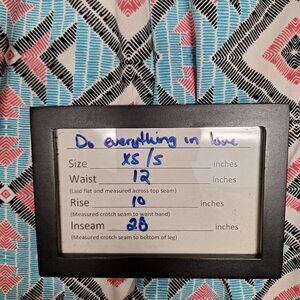 Do everything in love
Size XS/S inches
Waist 12 inches
(Laid flat and measured across top seam)
Rise 10 inches
(Measured crotch seam to waist band)
Inseam 28 inches
(Measured crotch seam to bottom of leg)